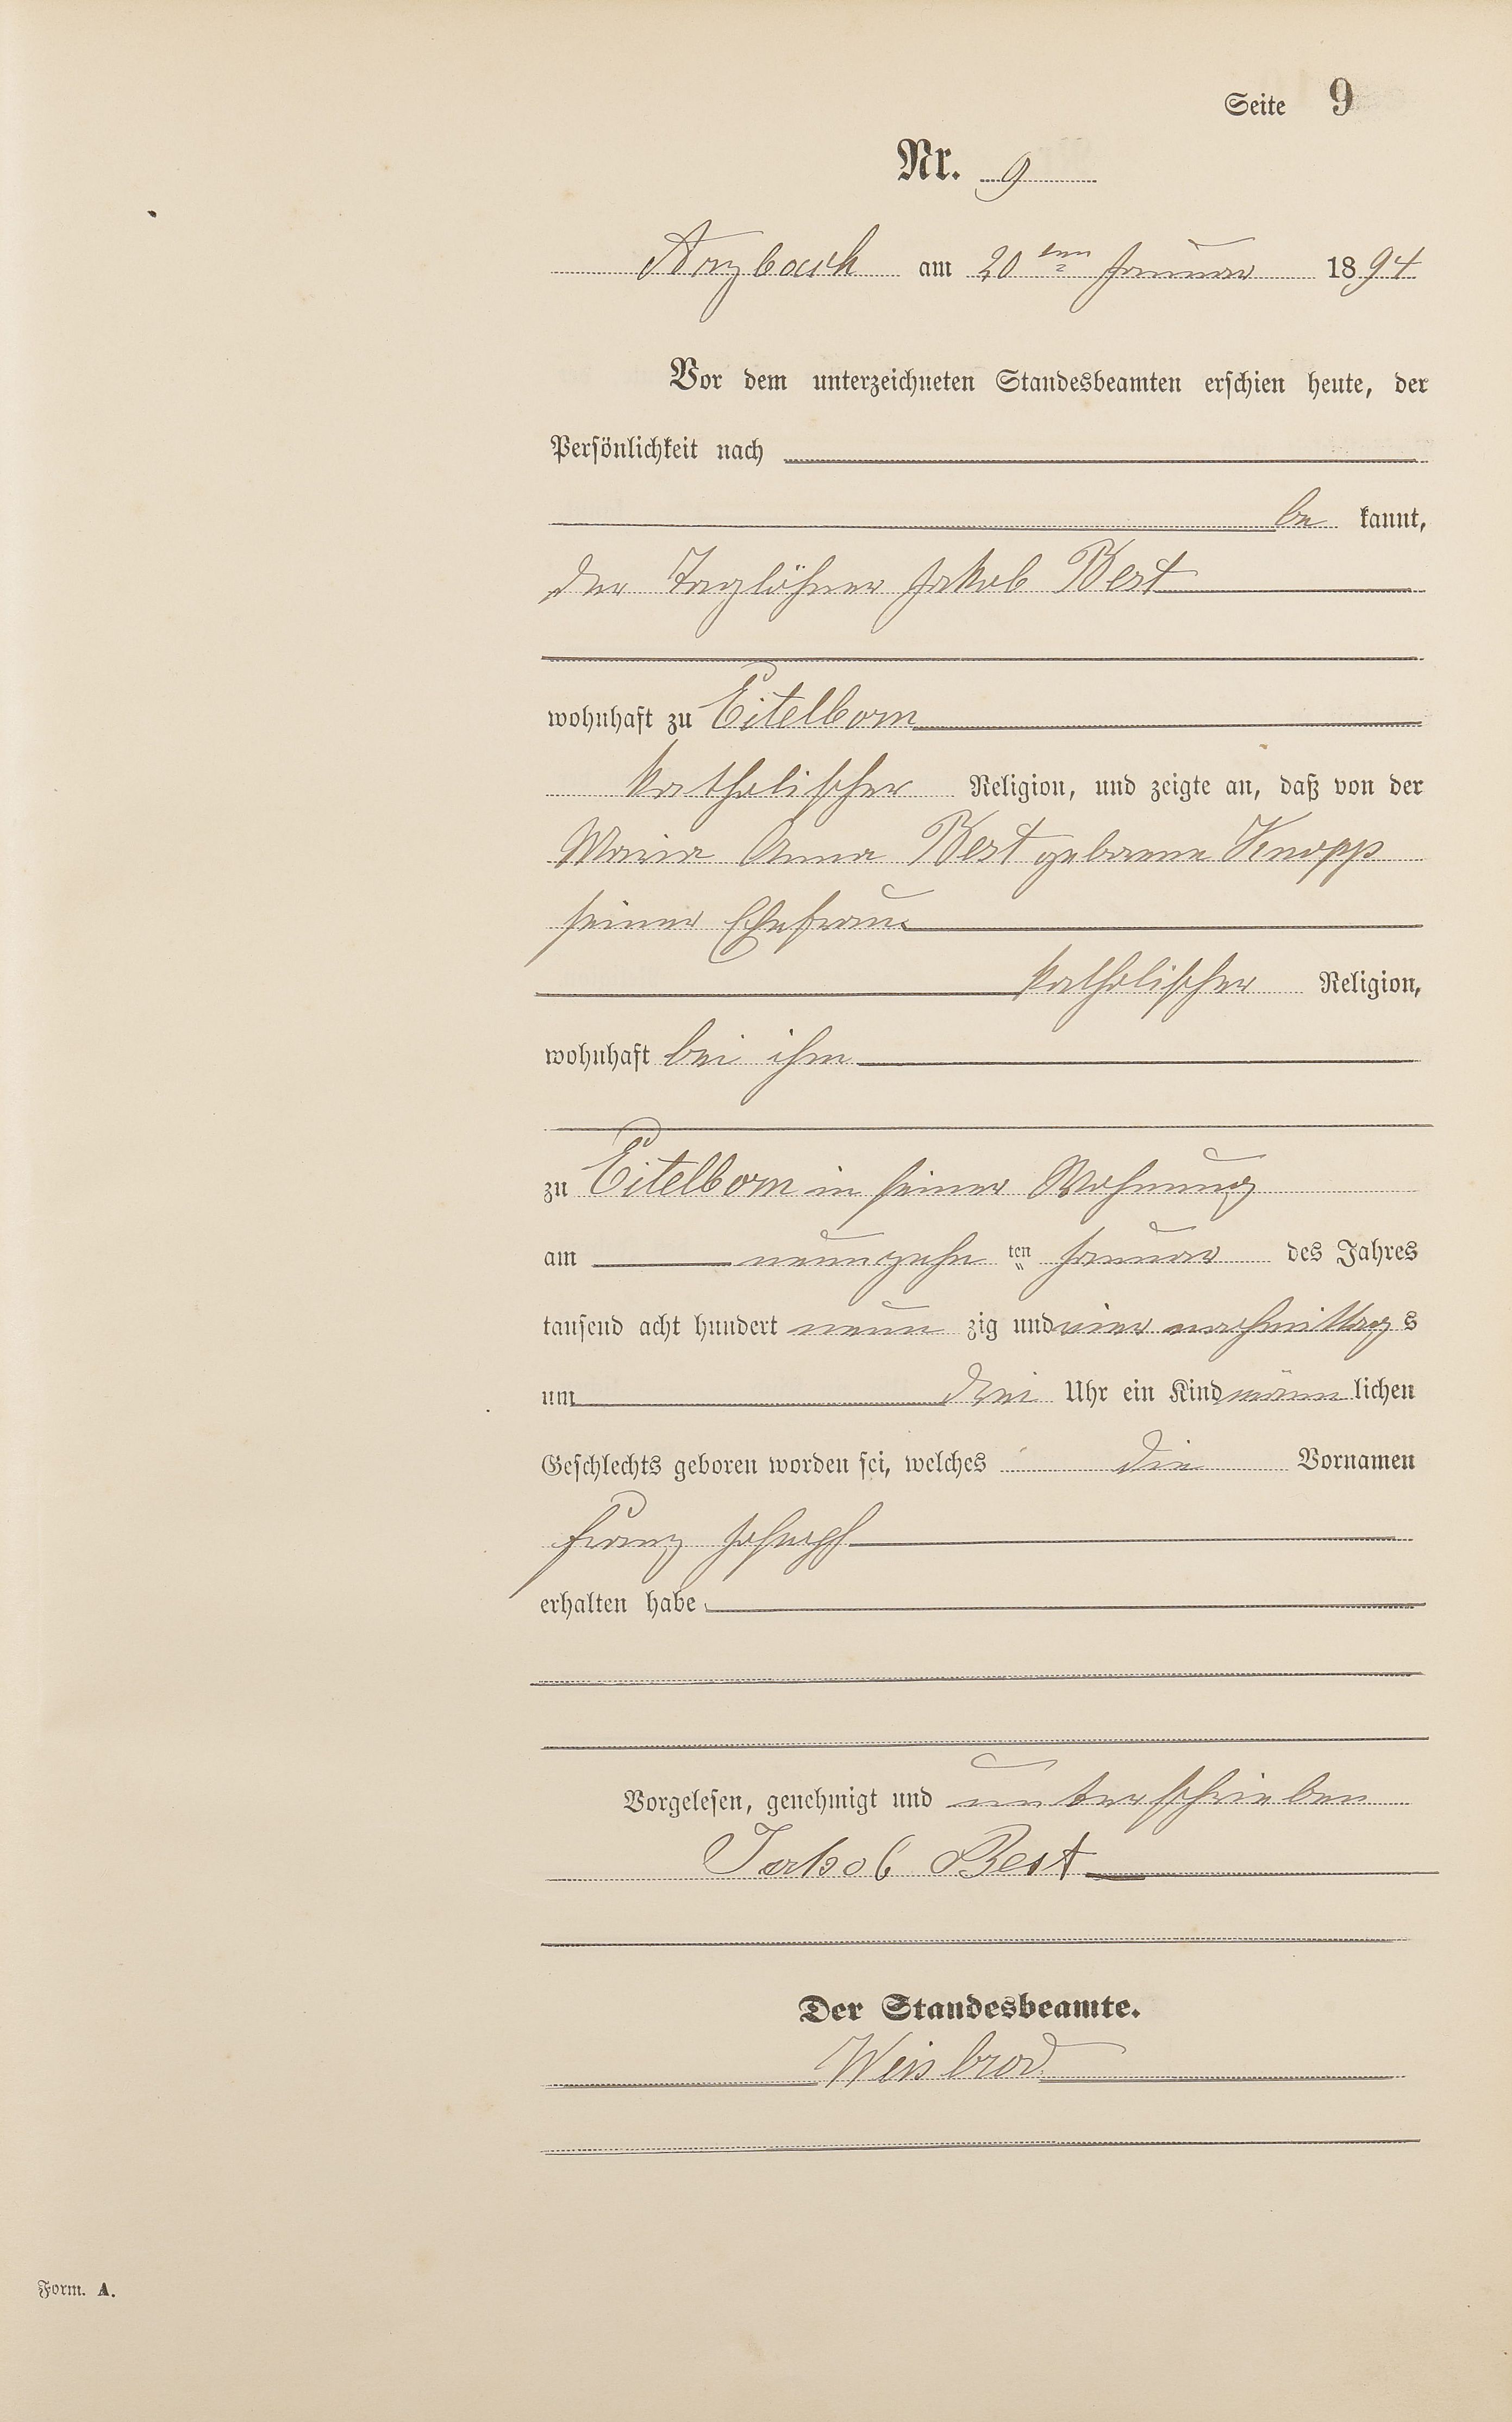 Seite 9
Nr. 9
Arzbach am 20ten Januar 1894
Vor dem unterzeichneten Standesbeamten erschien heute, der
Persönlichkeit nach
be kannt,
der Taglöhner Jakob Best
wohnhaft zu Eitelborn
katholischer Religion, und zeigte an, daß von der
Maria Anna Best geborene Knopp
seiner Ehefrau
katholischer Religion,
wohnhaft bei ihm
zu Eitelborn in seiner Wohnung
am neunzehn ten Januar des Jahres
tausend acht hundert neun zig und vier nachmittags
um drei Uhr ein Kind männlichen
Geschlechts geboren worden sei, welches die Vornamen
Franz Joseph
erhalten habe
Vorgelesen, genehmigt und unterschrieben
Jakob Best
Der Standesbeamte.
Weisbrod
Form. A.